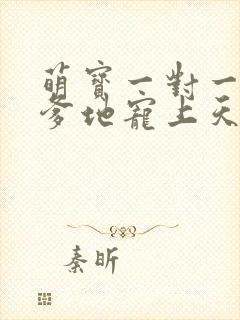 萌寶一對一
爹地寵上天
秦昕